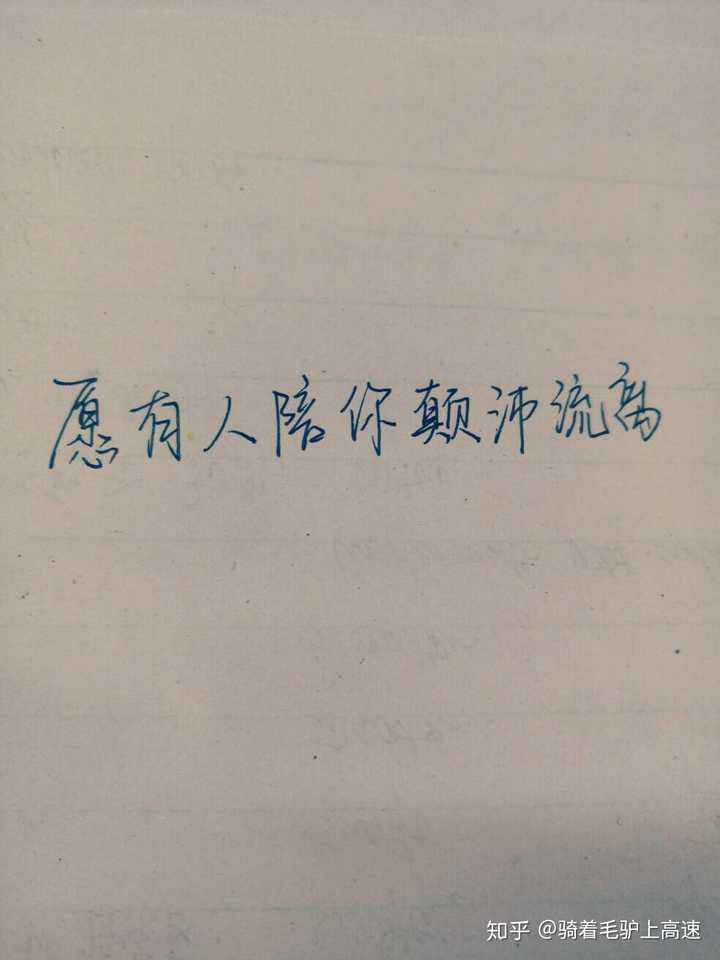 愿有人陪你颠沛流离
知乎 @骑着毛驴上高速